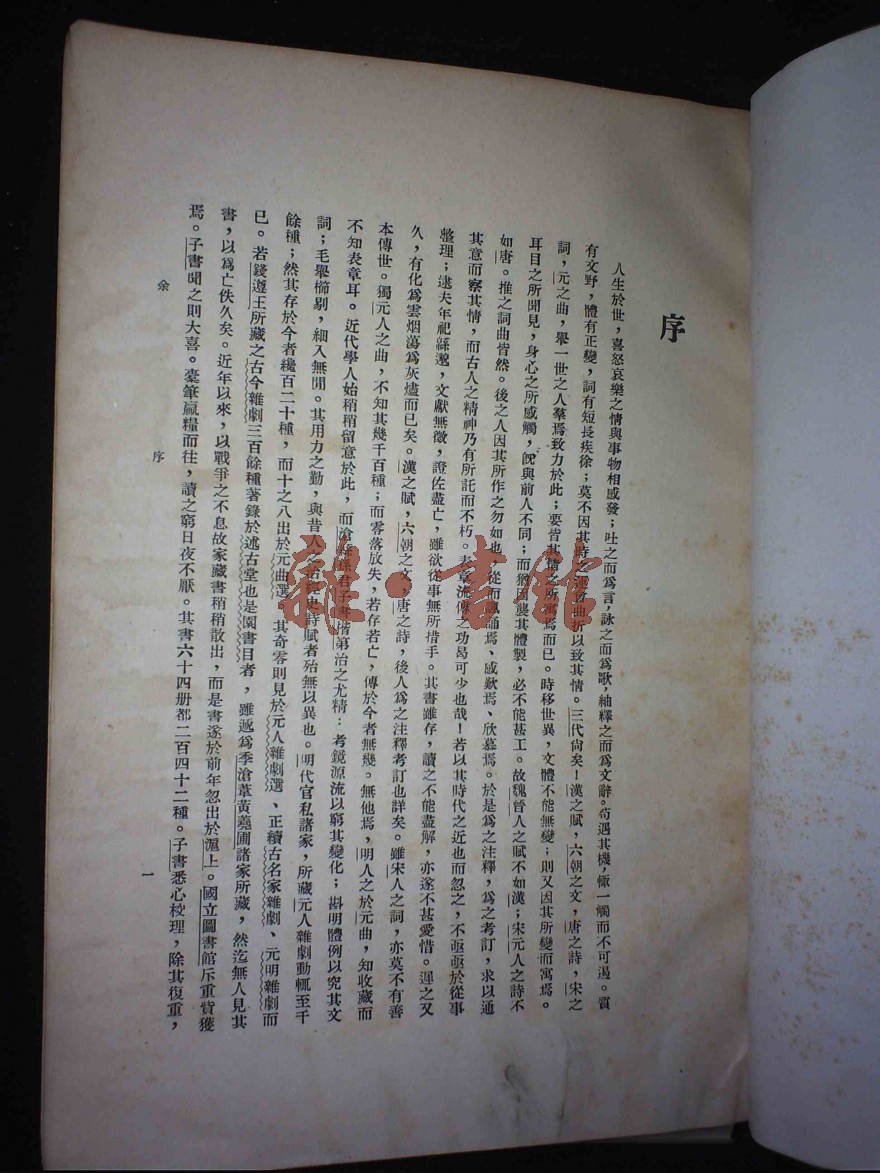 序
人生於世，喜怒哀樂之情與事物相感發；吐之而爲言，詠之而爲歌，紬釋之而爲文辭。苟遇其機，一觸而不可遏。質
有文野，體有正變，詞有短長疾徐；莫不因其時之曲折以致其情。三代尙矣！漢之賦，六朝之文，唐之詩，宋之
詞，元之曲，舉一世之人羣焉致力於此；要皆其情之所寓焉而已。時移世異，文體不能無變；則又因其所變而寓焉。
耳目之所聞見，身心之所感觸，旣與前人不同；而猶因襲其體製，必不能甚工。故魏晉人之賦不如漢；宋元人之詩不
如唐。推之詞曲皆然。後之人因其所作之勿如也，從而諷誦焉、感歎焉、欣慕焉。於是爲之注釋，爲之考訂，求以通
其意而察其情，而古人之精神乃有所託而不朽。表章流傳之功曷可少也哉！若以其時代之近也而忽之，不亟亟於從事
整理；逮夫年祀緜邈，文獻無徵，證佐盡亡，雖欲從事無所措手。其書雖存，讀之不能盡解，亦遂不甚愛惜。遲之又
久，有化爲雲烟蕩爲灰燼而已矣。漢之賦，六朝之文，唐之詩，後人爲之注釋考訂也詳矣。雖宋人之詞，亦莫不有善
本傳世。獨元人之曲，不知其幾千百種；而零落放失，若存若亡，傳於今者無幾。無他焉，明人之於元曲，知收藏而
不知表章耳。近代學人始稍稍留意於此，而滄縣孫君子書楷第治之尤精：考鏡源流以窮其變化；斟明體例以究其文
詞；毛舉櫛剔，細入無閒。其用力之勤，與昔人之治經史詩賦者殆無以異也。明代官私諸家，所藏元人雜劇動輒至千
餘種；然其存於今者纔百二十種，而十之八出於元曲選，其奇零則見於元人雜劇選、正續古名家雜劇、元明雜劇而
已。若錢遵王所藏之古今雜劇三百餘種著錄於述古堂也是園書目者，雖遞爲季滄葦黃蕘圃諸家所藏，然迄無人見其
書，以爲亡佚久矣。近年以來，以戰爭之不息故家藏書稍稍散出，而是書遂於前年忽出於滬上。國立圖書館斥重貲獲
焉。子書聞之則大喜。橐筆贏糧而往，讀之窮日夜不厭。其書六十四册都二百四十二種。子書悉心校理，除其復重，
余 序 一
雜·書館